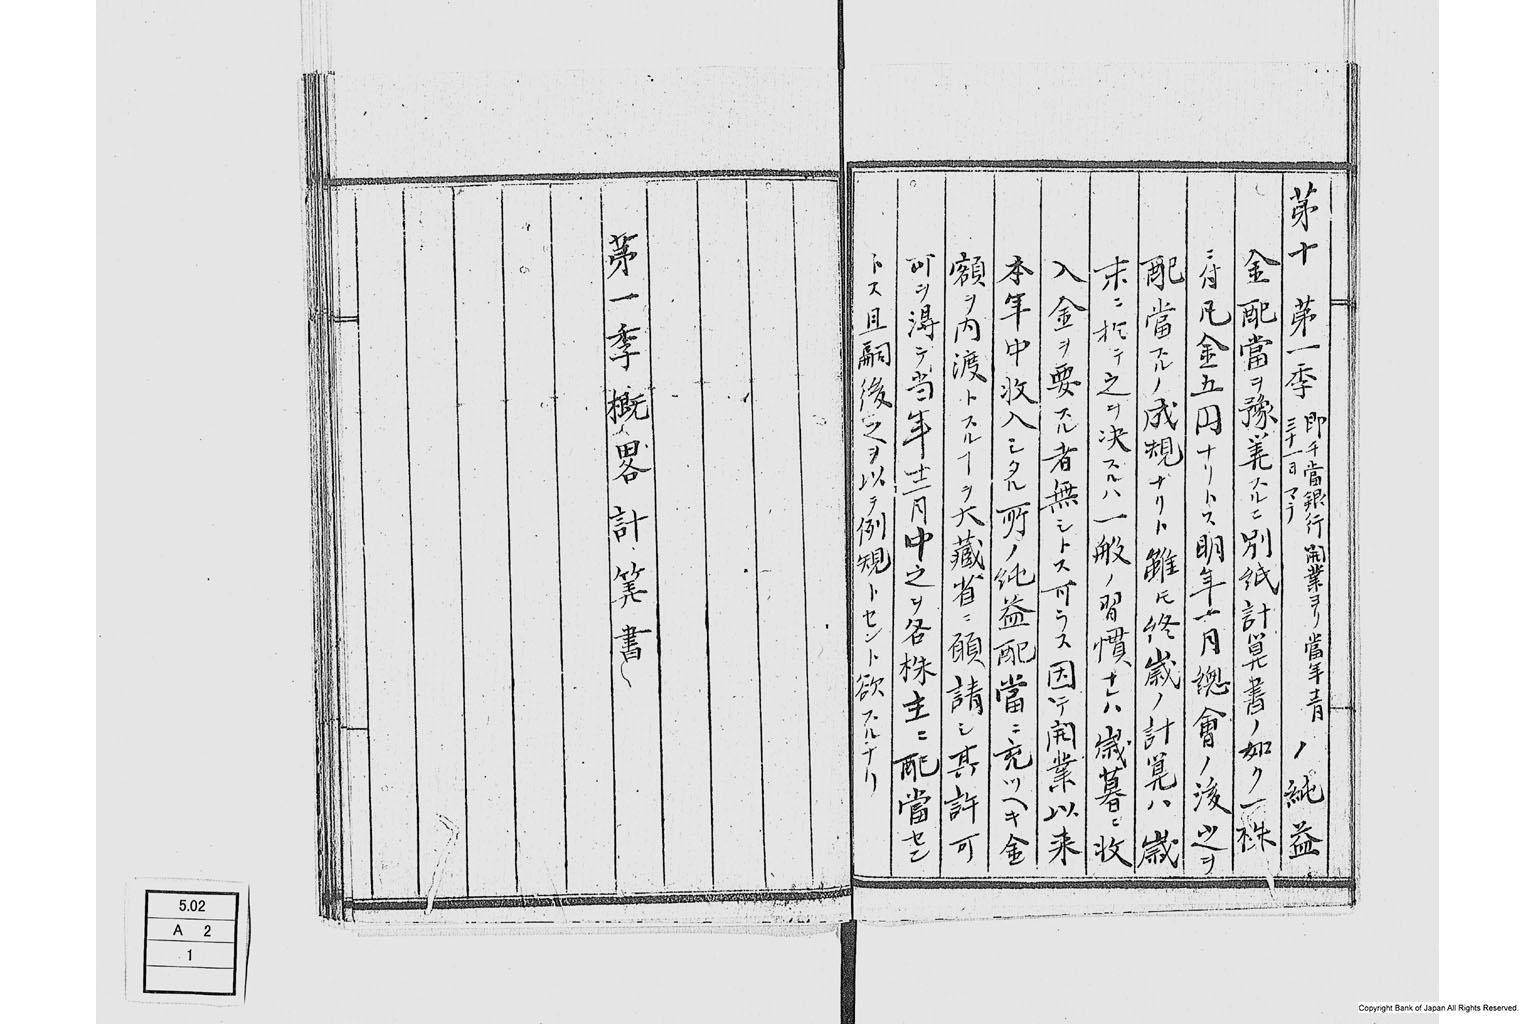 第十 第一季 即チ當銀行開業ヨリ當年十二月三十一日マテ ノ純益
金配當ヲ豫算スルニ別紙計算書ノ如ク一株
ニ付凡金五円ナリトス明年一月總會ノ後之ヲ
配當スルノ成規ナリト雖モ終歳ノ計算ハ歳
末ニ於テ之ヲ決スルハ一般ノ習慣ナレハ歳暮ニ收
入金ヲ要スル者無シトス可ラス因テ開業以来
本年中收入シタル所ノ純益配當ニ充ツヘキ金
額ヲ内渡トスルヿヲ大藏省ニ願請シ其許可
可ヲ得テ当年十二月中之ヲ各株主ニ配當セン
トス且嗣後之ヲ以テ例規トセント欲スルナリ
第一季概畧計算書
5.02
A 2
1
Copyright Bank of Japan All Rights Reserved.